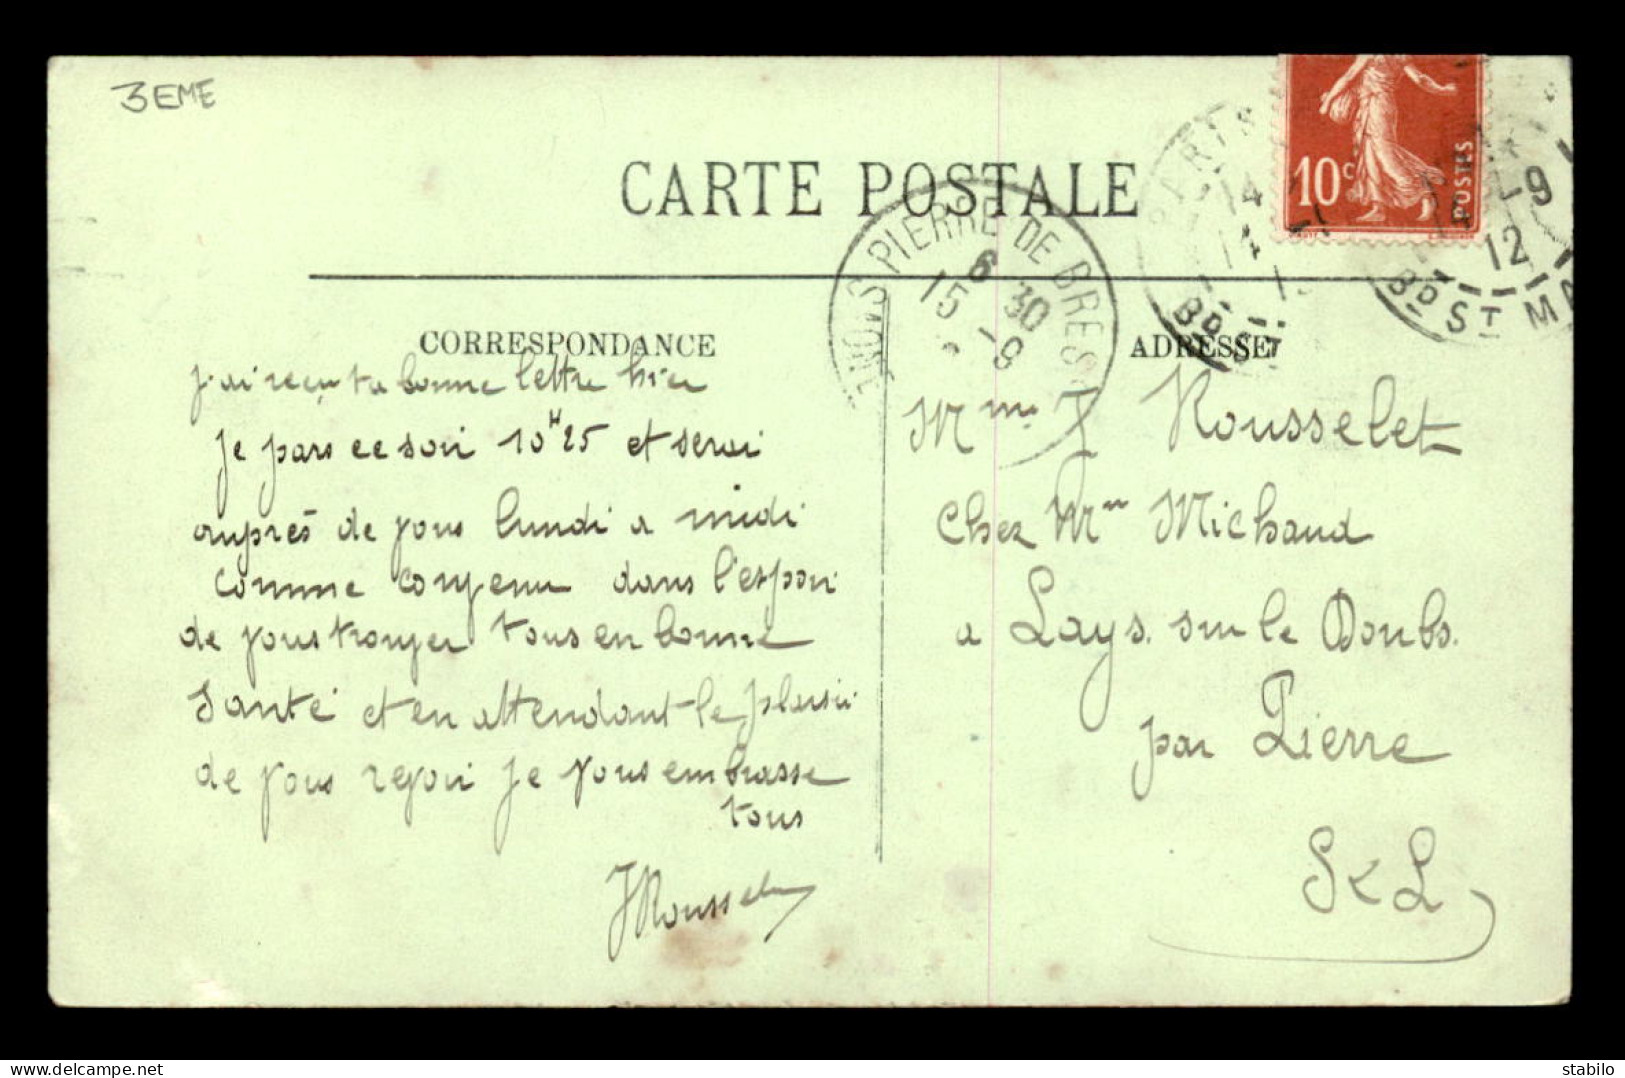 3EME
CARTE POSTALE
10c
POSTES
PIERRE DE BRESSE
6 30
15 -9
14
Bd St
-9
12
Bd St MA
CORRESPONDANCE
ADRESSE
j'ai reçu ta bonne lettre hier
Je pars ce soir 10H25 et serai
auprès de vous lundi a midi
comme convenu dans l'espoir
de vous trouver tous en bonne
Santé et en attendant le plaisir
de vous revoir je vous embrasse
tous
JRousselet
Mme J Rousselet
Chez Mr Michaud
a Lays. sur le Doubs.
par Pierre
S & L
delcampe.net
stabilo